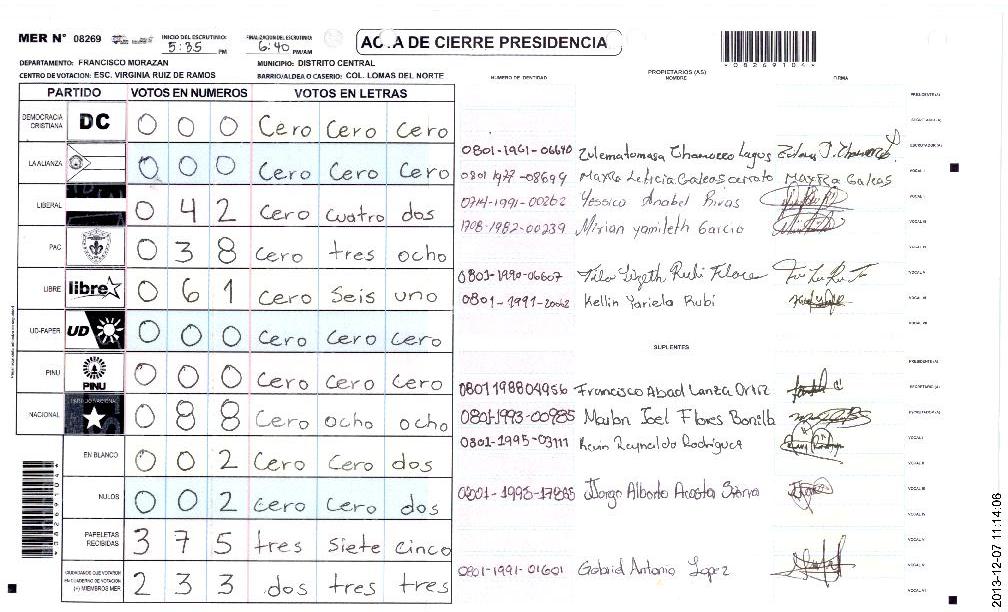 MER N° 08269
INICIO DEL ESCRUTINIO: 5:35 PM
FINALIZACION DEL ESCRUTINIO: 6:40 PM/AM
DE CIERRE PRESIDENCIA
*08269104*
DEPARTAMENTO: FRANCISCO MORAZAN
MUNICIPIO: DISTRITO CENTRAL
CENTRO DE VOTACION: ESC. VIRGINIA RUIZ DE RAMOS
BARRIO/ALDEA O CASERIO: COL. LOMAS DEL NORTE
PARTIDO VOTOS EN NUMEROS VOTOS EN LETRAS
DEMOCRACIA CRISTIANA DC 0 0 0 Cero Cero Cero
LA ALIANZA 0 0 0 Cero Cero Cero
LIBERAL 0 4 2 Cero cuatro dos
PAC 0 3 8 Cero tres ocho
LIBRE libre 0 6 1 Cero Seis uno
UD-FAPER UD 0 0 0 Cero Cero Cero
PINU PINU 0 0 0 Cero Cero Cero
NACIONAL 0 8 8 Cero ocho ocho
EN BLANCO 0 0 2 Cero Cero dos
NULOS 0 0 2 Cero Cero dos
PAPELETAS RECIBIDAS 3 7 5 tres Siete cinco
CIUDADANOS QUE VOTARON EN CUADERNO DE VOTACION (+) MIEMBROS MER 2 3 3 dos tres tres
NUMERO DE IDENTIDAD
PROPIETARIOS (AS)
NOMBRE
FIRMA
PRESIDENTE(A)
SECRETARIO(A)
0801-1961-06640 ESCRUTADOR(A)
0801 1977-08699 Leticia Galeas cerrato Galeas VOCAL I
0714-1991-00262 Yessica Anabel Rivas
1708-1982-00239 Mirian yamileth Garcia
0801-1990-06607 Rubi
0801-1991-20062 Kellin Yariela Rubi
SUPLENTES
PRESIDENTE(A)
0801198804956 Francisco Abad Lanza Ortiz SECRETARIO (A)
0801-1993-00985 Marlon Joel Flores Bonilla ESCRUTADOR(A)
0801-1995-03111 Kevin Reynaldo Rodriguez VOCAL I
VOCAL II
0801-1995-17885 Jorge Alberto Acosta VOCAL III
VOCAL IV
VOCAL V
0801-1991-01601 Gabriel Antonio Lopez
VOCAL VI
*08269104*
2013-12-07 11:14:06